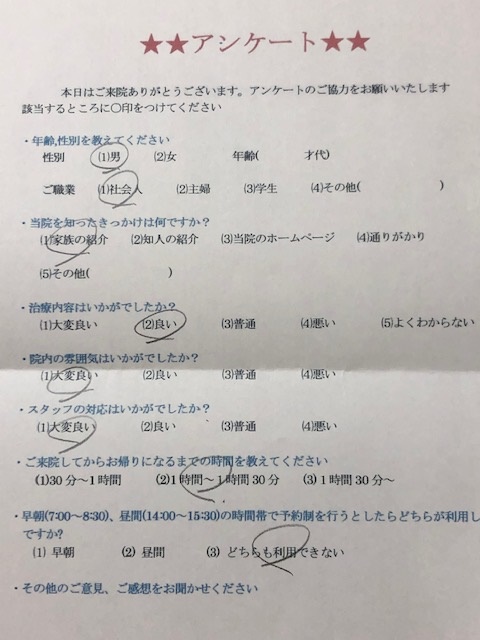 ★★アンケート★★
本日はご来院ありがとうございます。アンケートのご協力をお願いいたします
該当するところに〇印をつけてください
・年齢,性別を教えてください
性別 (1)男 (2)女 年齢( 才代)
ご職業 (1)社会人 (2)主婦 (3)学生 (4)その他( )
・当院を知ったきっかけは何ですか？
(1)家族の紹介 (2)知人の紹介 (3)当院のホームページ (4)通りがかり
(5)その他( )
・治療内容はいかがでしたか？
(1)大変良い (2)良い (3)普通 (4)悪い (5)よくわからない
・院内の雰囲気はいかがでしたか？
(1)大変良い (2)良い (3)普通 (4)悪い
・スタッフの対応はいかがでしたか？
(1)大変良い (2)良い (3)普通 (4)悪い
・ご来院してからお帰りになるまでの時間を教えてください
(1)30分～1時間 (2)1時間～1時間30分 (3)1時間30分～
・早朝(7:00～8:30)、昼間(14:00～15:30)の時間帯で予約制を行うとしたらどちらが利用し
ですか?
(1) 早朝 (2) 昼間 (3) どちらも利用できない
・その他のご意見、ご感想をお聞かせください